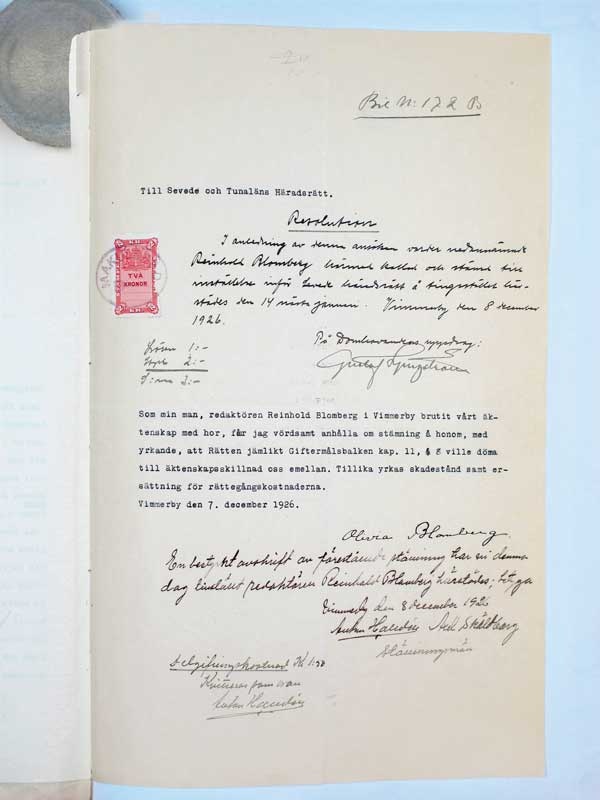 Bil No 172 B
Till Sevede och Tunaläns Häradsrätt.
Resolution
I anledning av denna ansökan varder nedannämnde
Reinhold Blomberg härmed kallad och stämd till
inställelse inför Sevede häradsrätt å tingsstället här-
städes den 14 nästa januari. Vimmerby den 8 december
1926.
TVÅ
KRONOR
På Domhavandens uppdrag:
Gustaf
Lösen 1:-
Stpl 2:-
S:ma 3:-
Som min man, redaktören Reinhold Blomberg i Vimmerby brutit vårt äk-
tenskap med hor, får jag vördsamt anhålla om stämning å honom, med
yrkande, att Rätten jämlikt Giftermålsbalken kap. 11, § 8 ville döma
till äktenskapsskillnad oss emellan. Tillika yrkas skadestånd samt er-
sättning för rättegångskostnaderna.
Vimmerby den 7. december 1926.
Olivia Blomberg.
En bestyrkt avskrift av förestående stämning har vi denna
dag tillställt redaktören Reinhold Blomberg härstädes; betyga
Vimmerby den 8 december 1926
Axel Sköldberg
Stämningsmän
Delgifningskostnad Kr 1:50
Kvitteras
Anton